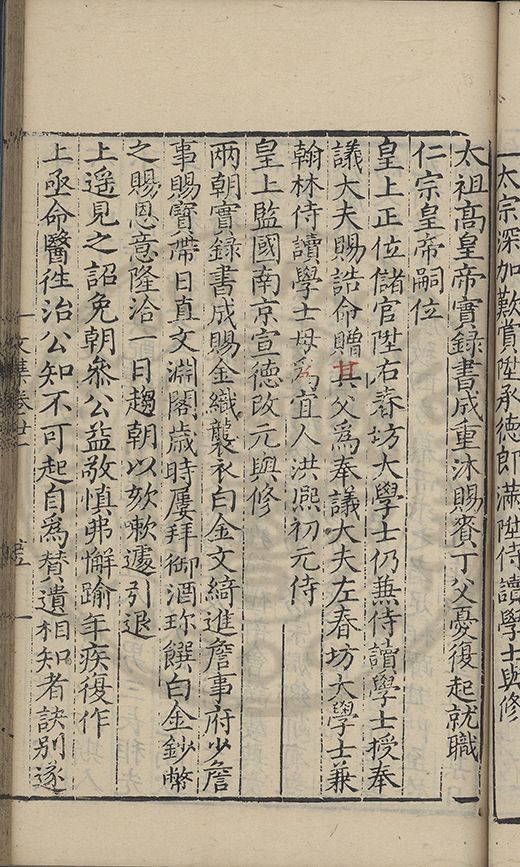 太宗深加歎賞陞承德郎滿陞侍讀學士與修
太祖高皇帝實錄書成重沐賜賚丁父憂復起就職
仁宗皇帝嗣位
皇上正位儲宮陞右春坊大學士仍兼侍讀學士授奉
議大夫賜誥命贈其父為奉議大夫左春坊大學士兼
翰林侍讀學士母為宜人洪熙初元侍
皇上監國南京宣德改元與修
兩朝實錄書成賜金織襲衣白金文綺進詹事府少詹
事賜寶帶日直文淵閣歲時屢拜御酒珎饌白金鈔幣
之賜恩意隆洽一日趨朝以欬嗽遽引退
上遥見之詔免朝叅公益敬慎弗懈踰年疾復作
上亟命醫徃治公知不可起自為賛遺相知者訣別遂
文集卷廿一